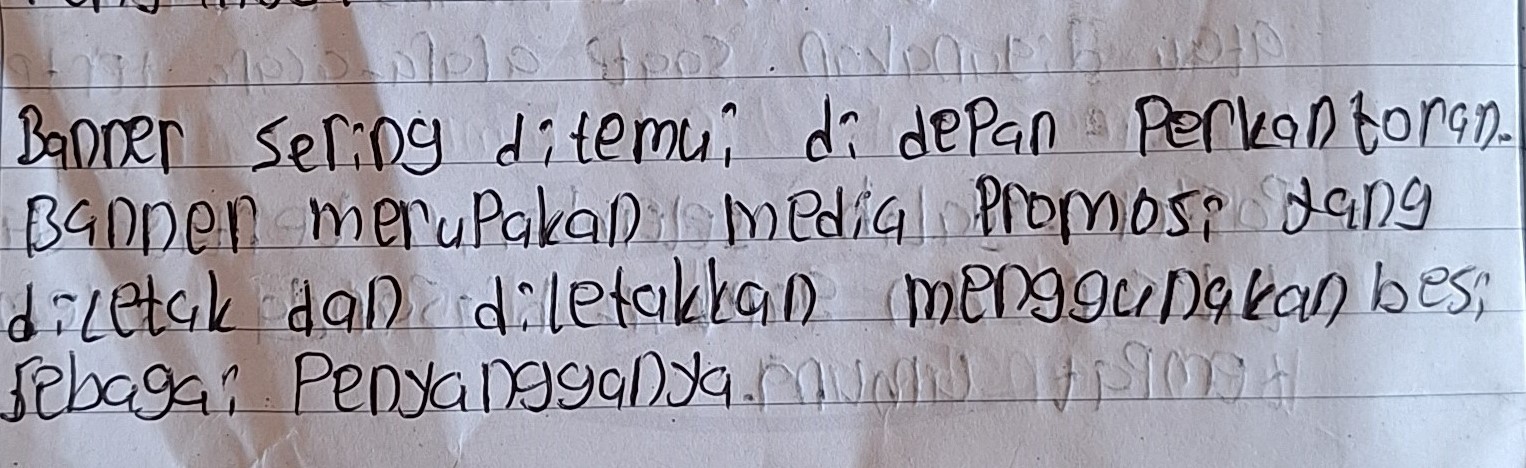 Banner sering ditemui di depan Perkantoran.
Banner merupakan media Promosi yang
dicetak dan diletakkan menggunakan besi
sebagai Penyangganya.